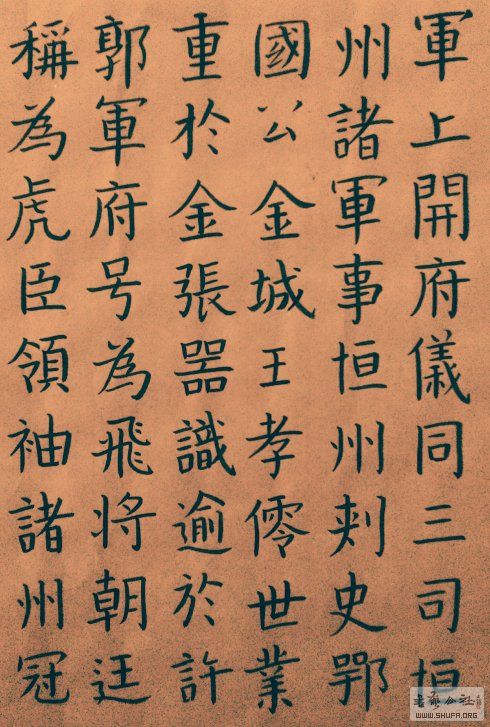 軍上開府儀同三司恒
州諸軍事恒州刾史鄂
國公金城王孝僀世業
重於金張器識逾於許
郭軍府号為飛将朝迋
稱為虎臣領袖諸州冠
書法公社
WWW.SHUFA.ORG